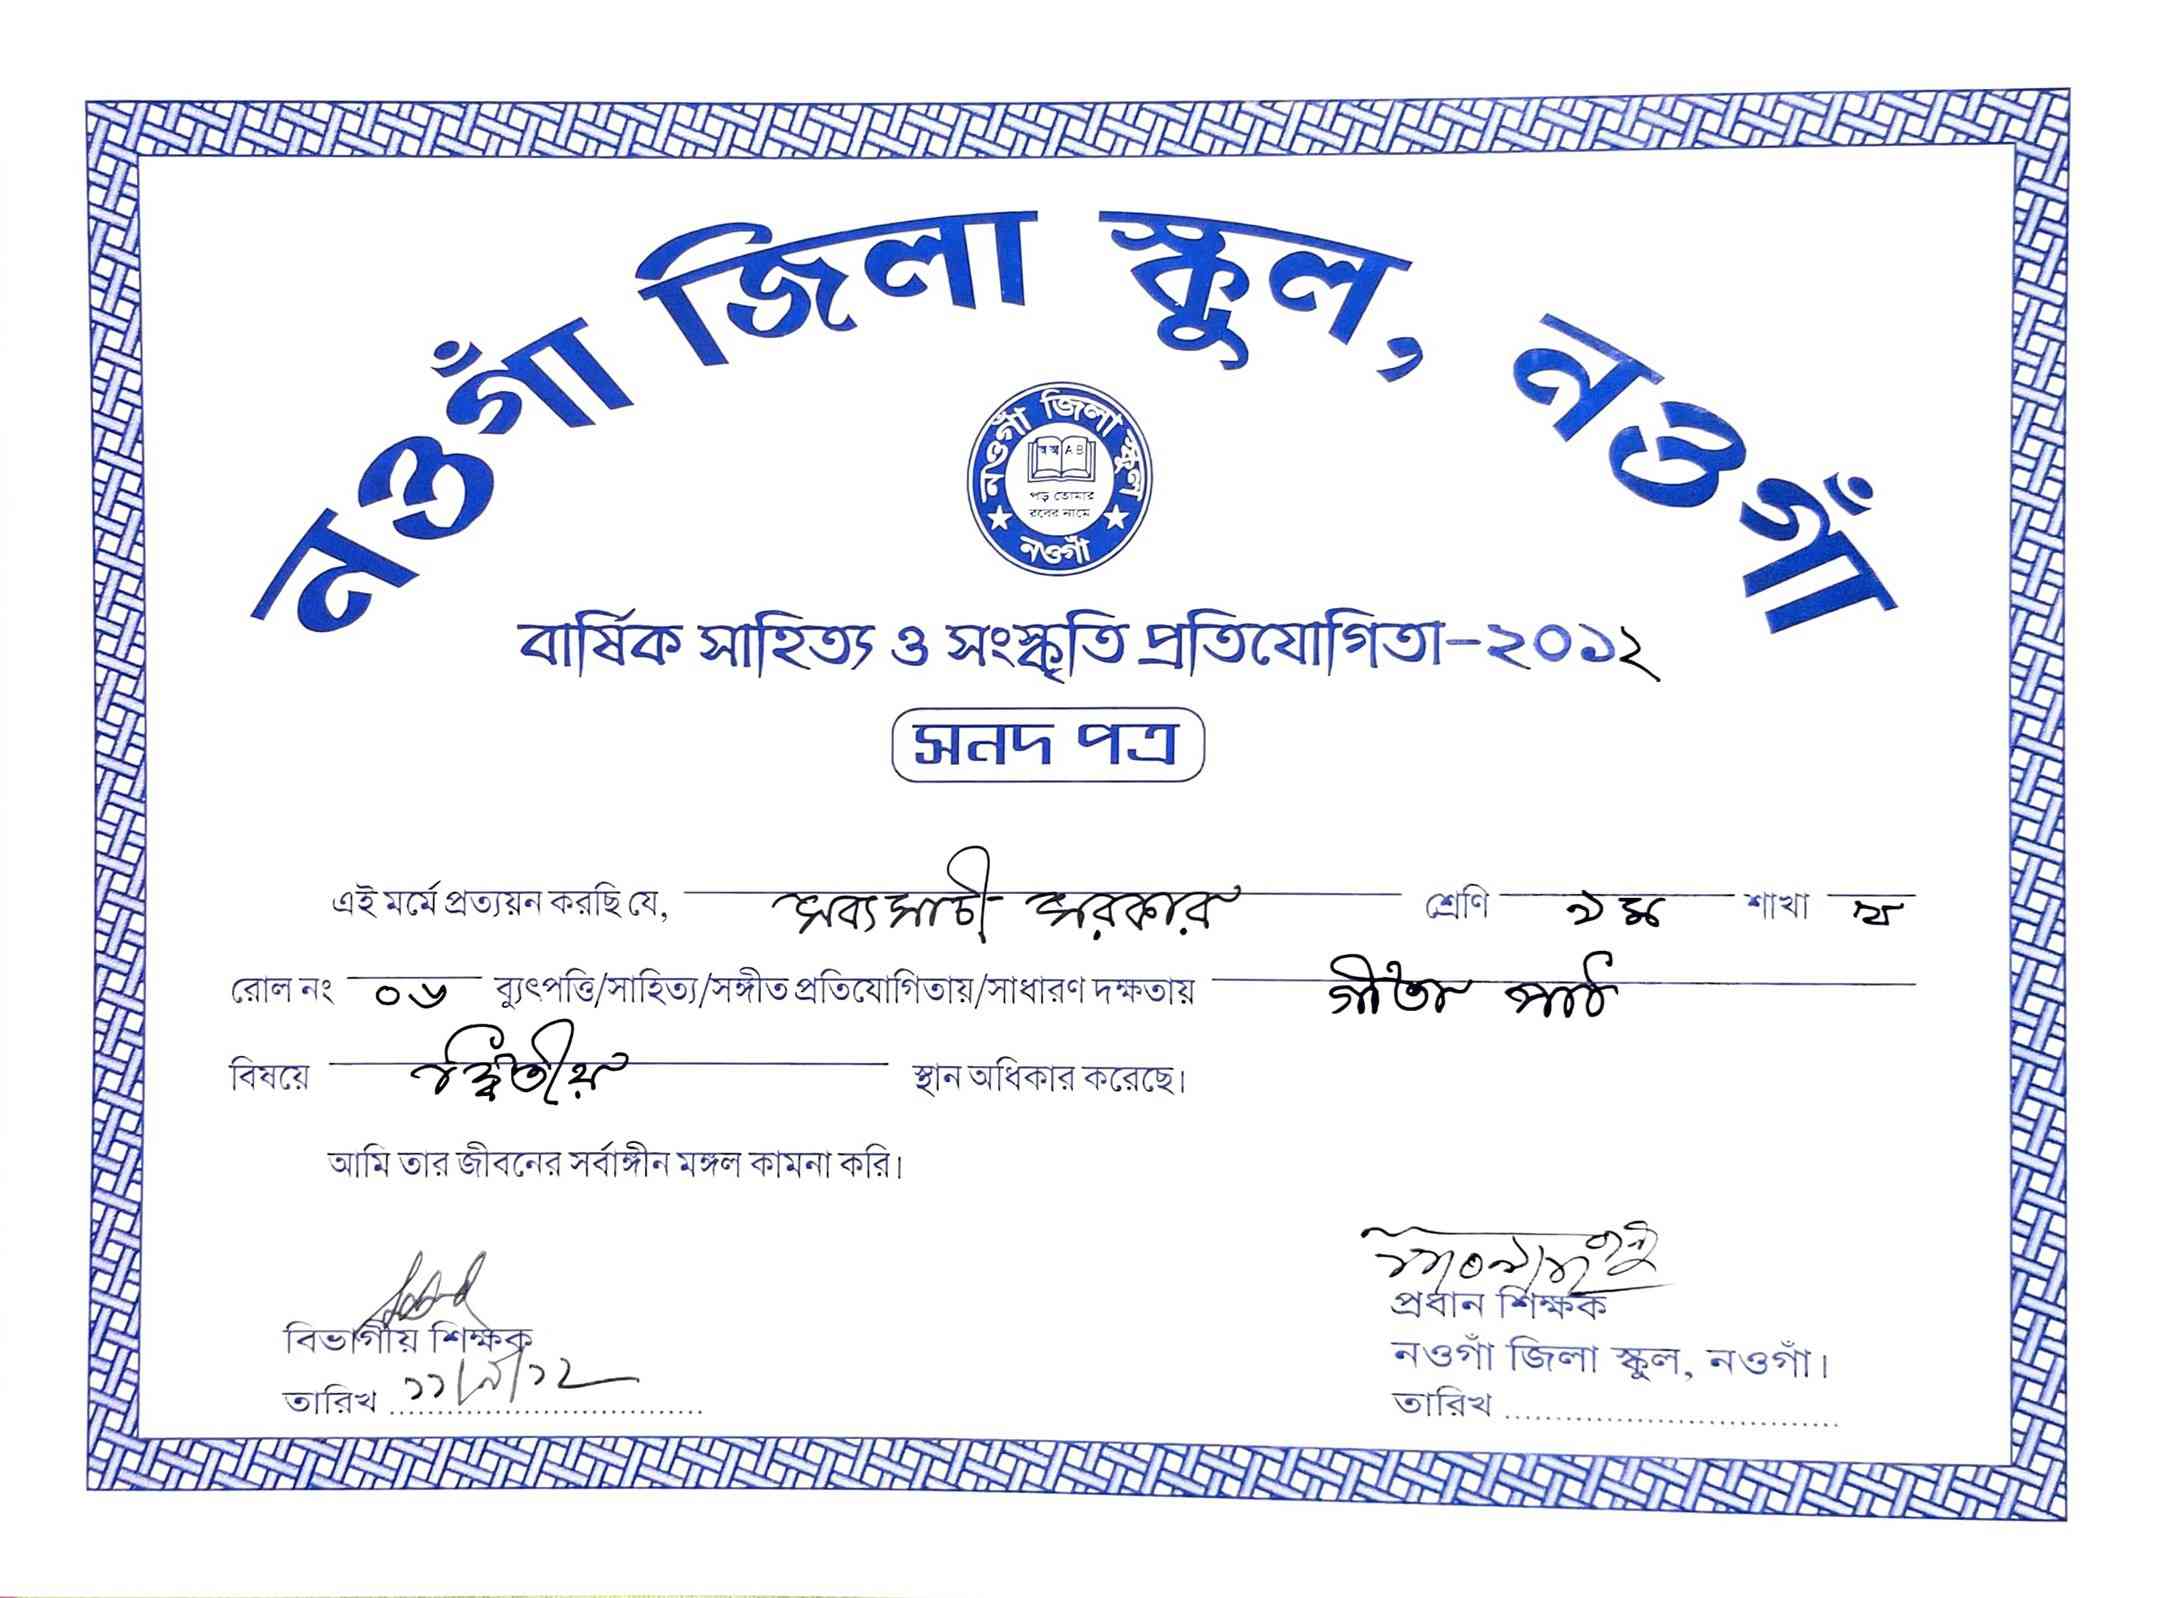 নওগাঁ জিলা স্কুল, নওগাঁ
নওগাঁ জিলা স্কুল
অ আ A B
পড় তোমার
রবের নামে
নওগাঁ
বার্ষিক সাহিত্য ও সংস্কৃতি প্রতিযোগিতা-২০১২
সনদ পত্র
এই মর্মে প্রত্যয়ন করছি যে, সব্যসাচী সরকার শ্রেণি ৯ম শাখা খ
রোল নং ০৬ ব্যুৎপত্তি/সাহিত্য/সঙ্গীত প্রতিযোগিতায়/সাধারণ দক্ষতায় গীতা পাঠ
বিষয়ে দ্বিতীয় স্থান অধিকার করেছে।
আমি তার জীবনের সর্বাঙ্গীন মঙ্গল কামনা করি।
বিভাগীয় শিক্ষক
তারিখ ১১/৯/১২
প্রধান শিক্ষক
নওগাঁ জিলা স্কুল, নওগাঁ।
তারিখ